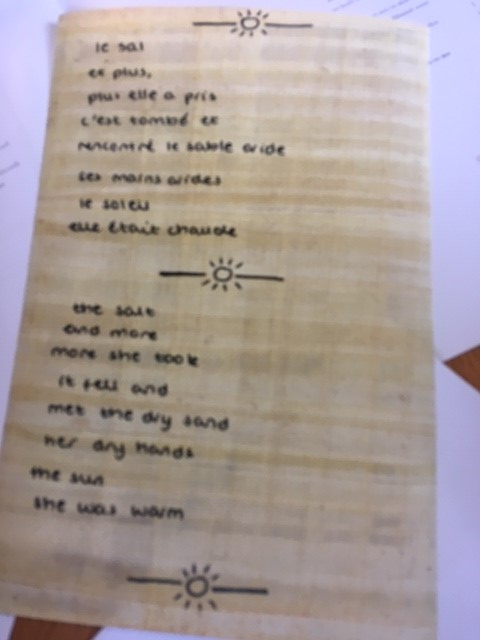 le sal
et plus,
plus elle a pris
c'est tombé et
rencontré le sable aride
ses mains arides
le soleil
elle était chaude
the salt
and more
more she took
it fell and
met the dry sand
her dry hands
the sun
she was warm